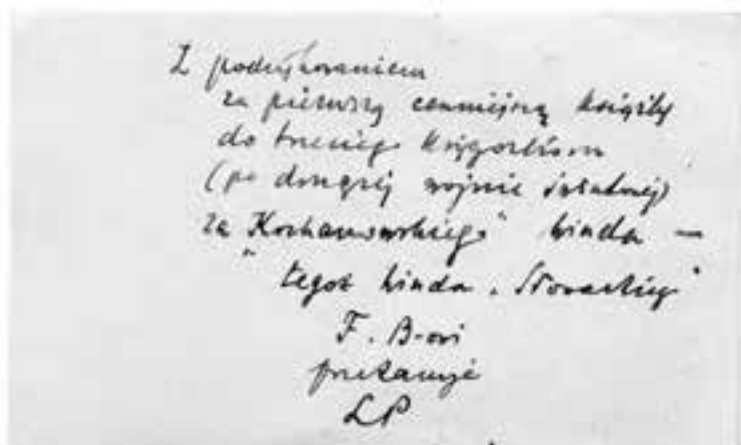 Z podziękowaniem
za pierwszą cenniejszą książkę
do trzeciego księgozbioru
(po drugiej wojnie światowej)
za Kochanowskiego" Winda —
" tegoż Winda „Słowackiego"
F. B-owi
przekazuje
LP